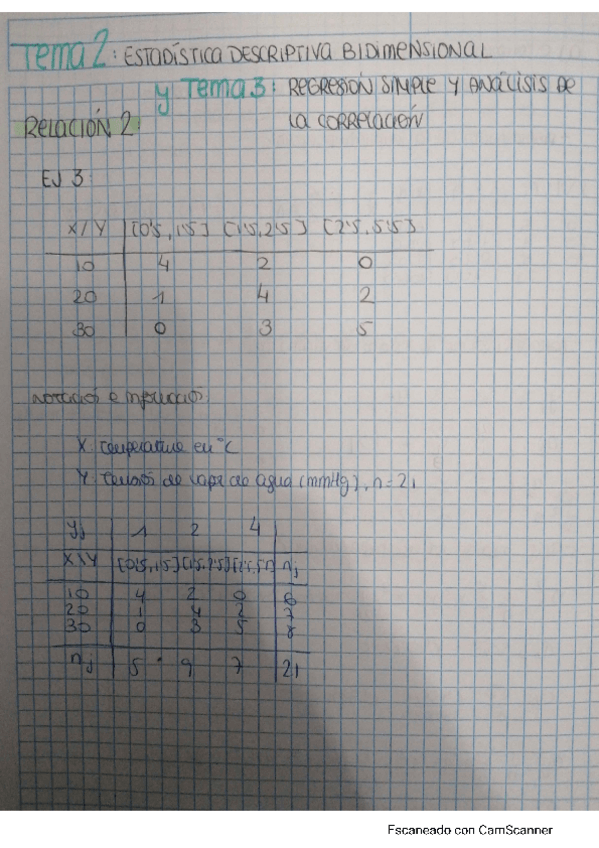 Tema 2: ESTADÍSTICA DESCRIPTIVA BIDIMENSIONAL
y Tema 3: REGRESIÓN SIMPLE Y ANÁLISIS DE
RELACIÓN 2: LA CORRELACIÓN
EJ 3:
X/Y [0'5,1'5] (1'5,2'5] (2'5,5'5]
10 4 2 0
20 1 4 2
30 0 3 5
X: Temperatura en °C
Y: Tensión de vapor de agua (mmHg), n=21
yj 1 2 4
X\Y [0'5,1'5] (1'5,2'5]
10 4 2 0 6
20 1 4 2 7
30 0 3 5 8
nj 5 9 7 21
Escaneado con CamScanner